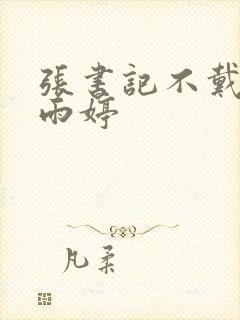 張書記不戴
雨婷
凡柔